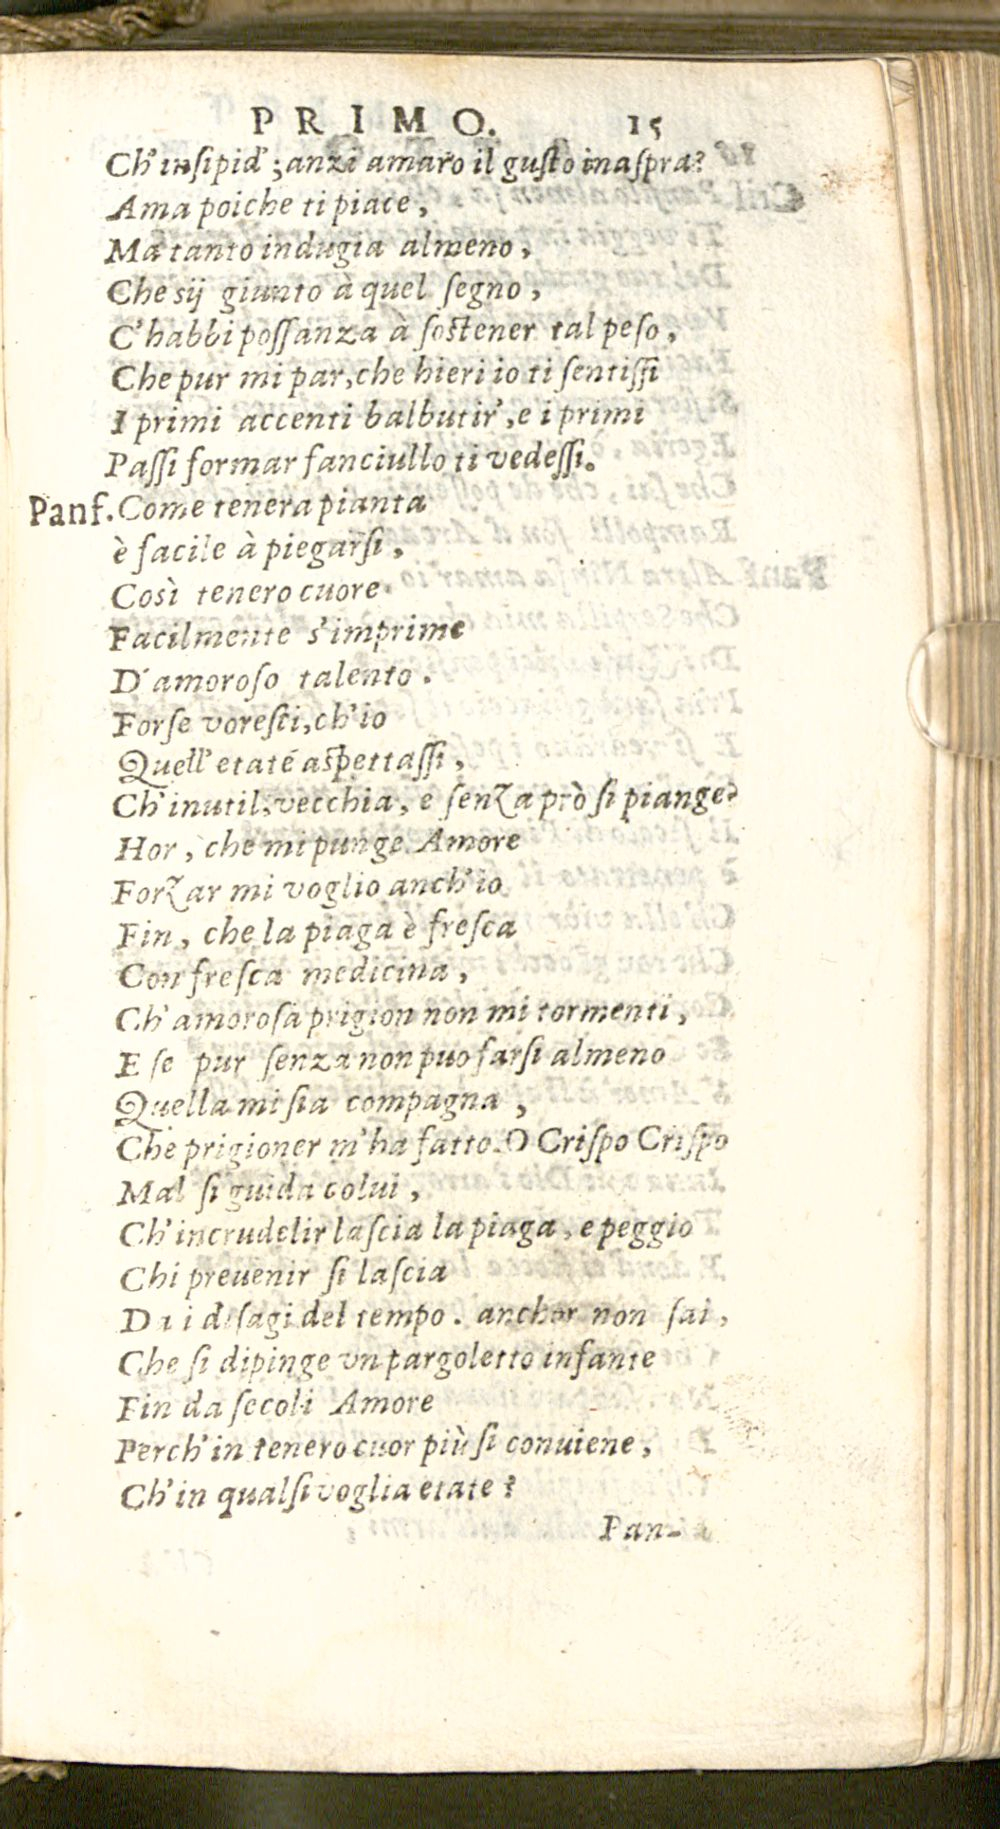 PRIMO. 15
Ch'insipid'; anzi amaro il gusto inaspra?
Ama poiche ti piace,
Ma tanto indugia almeno,
Che sij giunto à quel segno,
C'habbi possanza à sostener tal peso,
Che pur mi par, che hieri io ti sentissi
I primi accenti balbutir', e i primi
Passi formar fanciullo ti vedessi.
Panf. Come tenera pianta
è facile à piegarsi,
Così tenero cuore
Facilmente s'imprime
D'amoroso talento.
Forse voresti, ch'io
Quell'etate aspettassi,
Ch'inutil, vecchia, e senza prò si piange?
Hor, che mi punge Amore
Forzar mi voglio anch'io
Fin, che la piaga è fresca
Con fresca medicina,
Ch'amorosa prigion non mi tormenti,
E se pur senza non puo farsi almeno
Quella mi sia compagna,
Che prigioner m'ha fatto. O Crispo Crispo
Mal si guida colui,
Ch'incrudelir lascia la piaga, e peggio
Chi preuenir si lascia
Da i disagi del tempo. anchor non sai,
Che si dipinge vn pargoletto infante
Fin da secoli Amore
Perch'in tenero cuor più si conuiene,
Ch'in qualsi voglia etate?
Pan-